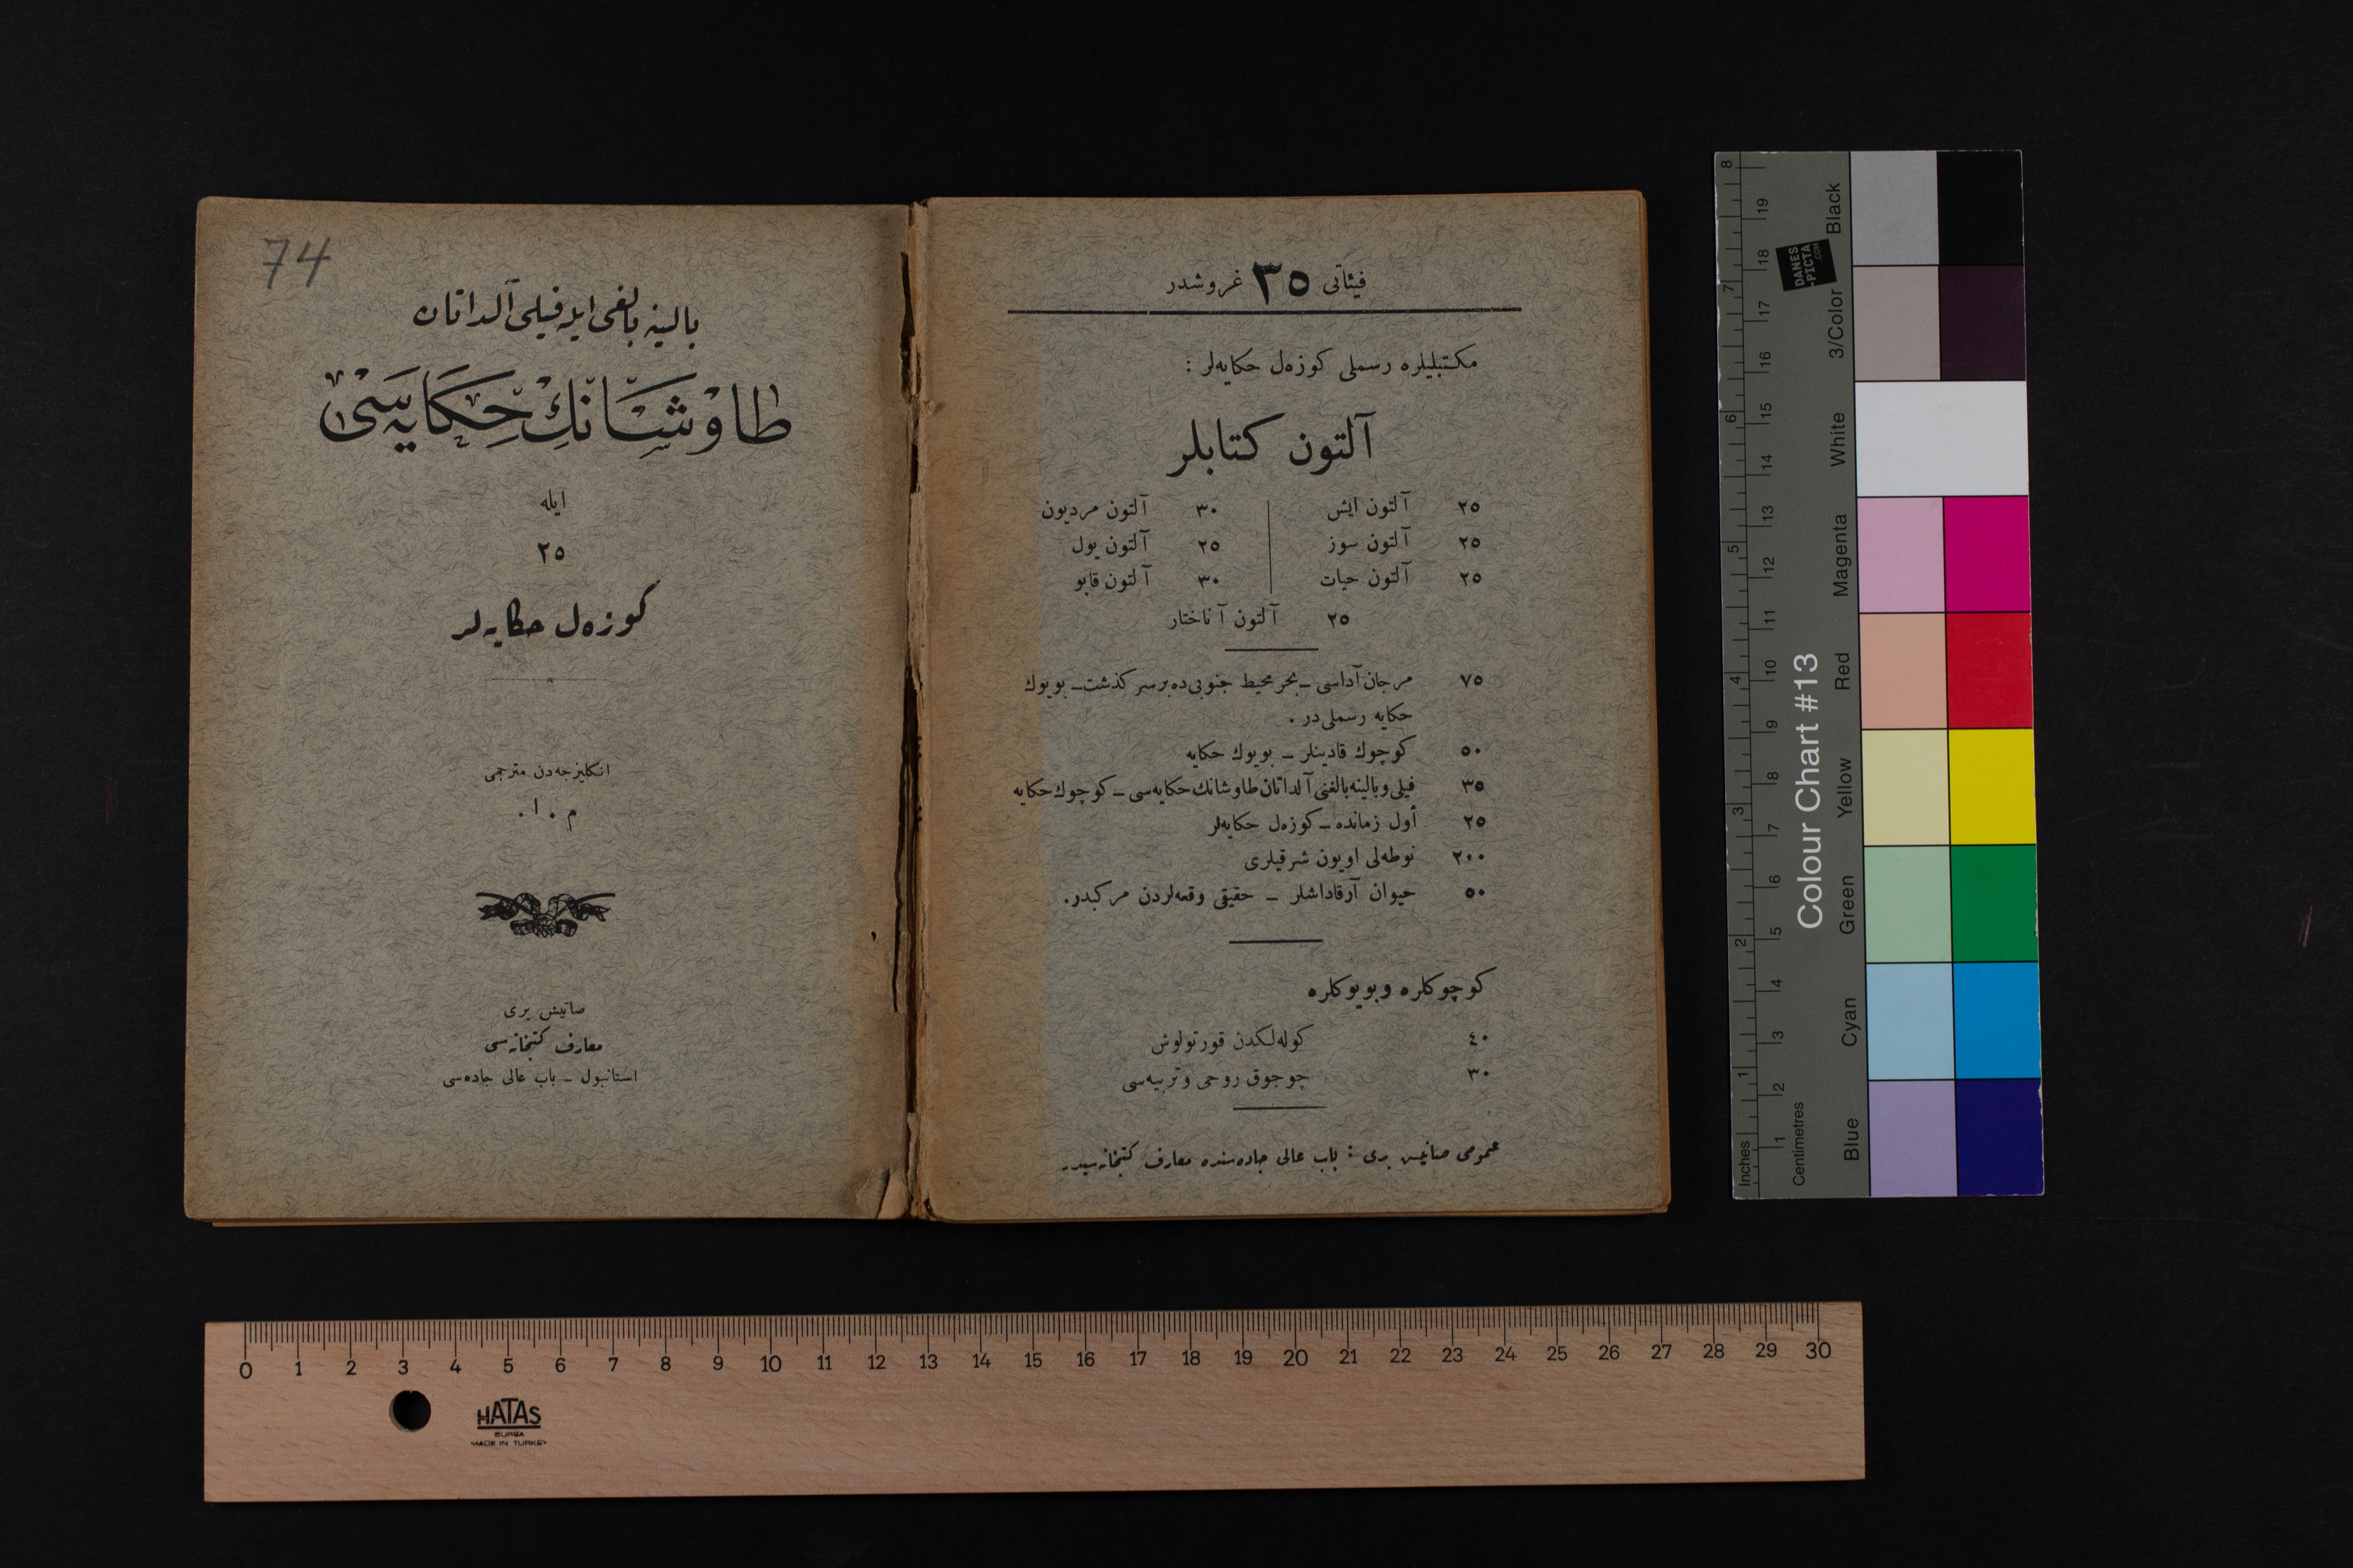 74
بالینه بالغی ایله فیلی آلداتان
طاوشانك حكایه‌سی
ایله
٢٥
كوزه‌ل حكایه‌لر
انكلیزجه‌دن مترجمی
م . ا .
صاتیش یری
معارف كتبخانه‌سی
استانبول ـ باب عالی جاده‌سی
فیئاتی ٣٥ غروشدر
مكتبلیلره رسملی كوزه‌ل حكایه‌لر :
آلتون كتابلر
٢٥ آلتون ایش
٢٥ آلتون سوز
٢٥ آلتون حیات
٣٠ آلتون مردیون
٢٥ آلتون یول
٣٠ آلتون قاپو
٢٥ آلتون آناختار
٧٥ مرجان آداسی ـ بحر محیط جنوبی‌ده بر سر كذشت ـ بویوك
حكایه رسملی‌در .
٥٠ كوچوك قادینلر ـ بویوك حكایه
٣٥ فیلی و بالینه بالغنی آلداتان طاوشانك حكایه‌سی ـ كوچوك حكایه
٢٥ أول زمانده ـ كوزه‌ل حكایه‌لر
٢٠٠ نوطه‌لی اویون شرقیلری
٥٠ حیوان آرقاداشلر ـ حقیقی وقعه‌لردن مركبدر.
كوچوكلره وبویوكلره
٤٠ كوله‌لكدن قورتولوش
٣٠ چوجوق روحی و تربیه‌سی
عمومی صاتیش یری : باب عالی جاده‌سنده معارف كتبخانه‌سیدر.
Inches
1
2
3
4
5
6
7
8
Centimetres
1
2
3
4
5
6
7
8
9
10
11
12
13
14
15
16
17
18
19
Colour Chart #13
DANES
-PICTA
.COM
Blue
Cyan
Green
Yellow
Red
Magenta
White
3/Color
Black
0 1 2 3 4 5 6 7 8 9 10 11 12 13 14 15 16 17 18 19 20 21 22 23 24 25 26 27 28 29 30
HATAS
BURSA
MADE IN TURKEY